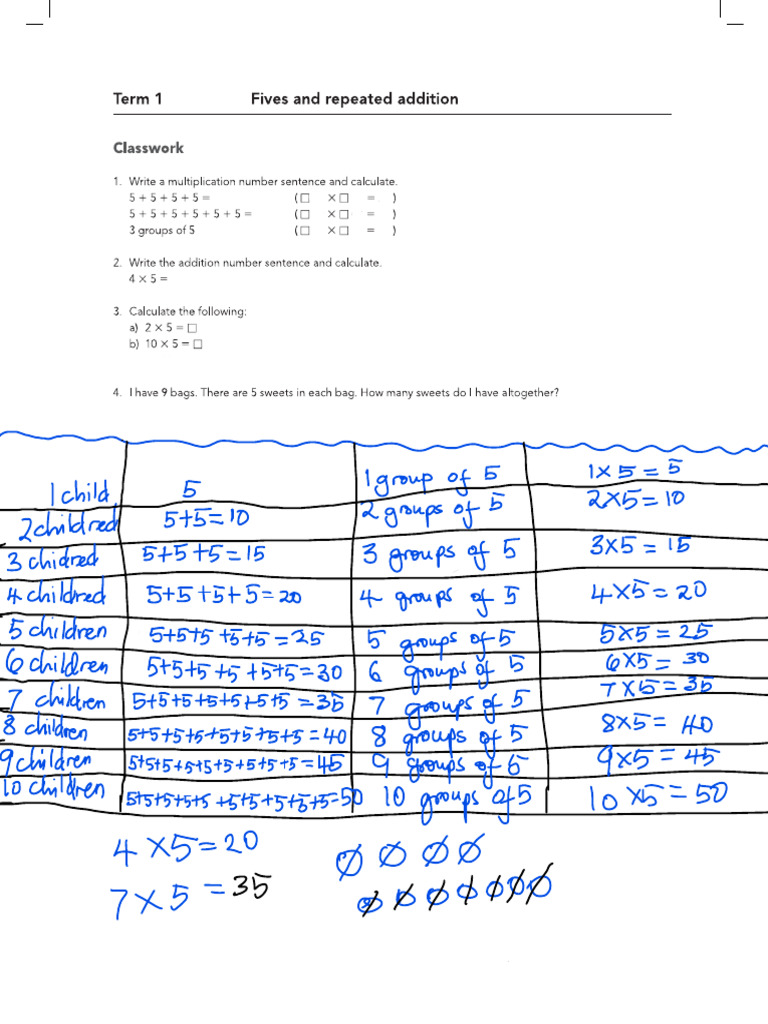 Term 1 Fives and repeated addition
Classwork
1. Write a multiplication number sentence and calculate.
5 + 5 + 5 + 5 = (□ × □ = )
5 + 5 + 5 + 5 + 5 + 5 = (□ × □ = )
3 groups of 5 (□ × □ = )
2. Write the addition number sentence and calculate.
4 × 5 =
3. Calculate the following:
a) 2 × 5 = □
b) 10 × 5 = □
4. I have 9 bags. There are 5 sweets in each bag. How many sweets do I have altogether?
1 child 5 1 group of 5 1×5=5
2 childred 5+5=10 2 groups of 5 2×5=10
3 chidred 5+5+5=15 3 groups of 5 3×5=15
4 childred 5+5+5+5=20 4 groups of 5 4×5=20
5 children 5+5+5+5+5=25 5 groups of 5 5×5=25
6 children 5+5+5+5+5+5=30 6 groups of 5 6×5=30
7 children 5+5+5+5+5+5+5=35 7 groups of 5 7×5=35
8 children 5+5+5+5+5+5+5+5=40 8 groups of 5 8×5=40
9 children 5+5+5+5+5+5+5+5+5=45 9 groups of 5 9×5=45
10 children 5+5+5+5+5+5+5+5+5+5=50 10 groups of 5 10×5=50
4×5=20
7×5=35